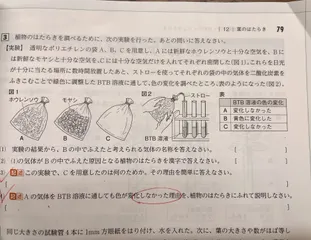 12 葉のはたらき 79
3 植物のはたらきを調べるために,次の実験を行った。あとの問いに答えなさい。
〔実験〕 透明なポリエチレンの袋A,B,Cを用意し,Aには新鮮なホウレンソウと十分な空気を,Bに
は新鮮なモヤシと十分な空気を,Cには十分な空気だけを入れてそれぞれ密閉した(図1)。これらを日光
が十分に当たる場所に数時間放置したあと,ストローを使ってそれぞれの袋の中の気体を二酸化炭素を
ふきこむことで緑色に調整したBTB溶液に通して,色の変化を調べたところ,表のようになった(図2)。
図1
ホウレンソウ モヤシ
A B C
図2
ストロー
BTB溶液
表
BTB溶液の色の変化
A 変化しなかった
B 黄色に変化した
C 変化しなかった
(1) 実験の結果から,Bの中でふえたと考えられる気体の名称を答えなさい。
(2) (1)の気体がBの中でふえた原因となる植物のはたらきを漢字で答えなさい。
この実験で,Cを用意したのは何のためか。その理由を簡単に答えなさい。
Aの気体をBTB溶液に通しても色が変化しなかった理由を,植物のはたらきにふれて説明しなさい。
同じ大きさの試験管4本に1mm方眼紙をはり付け,水を入れた。次に,葉の大きさや数がほぼ等し